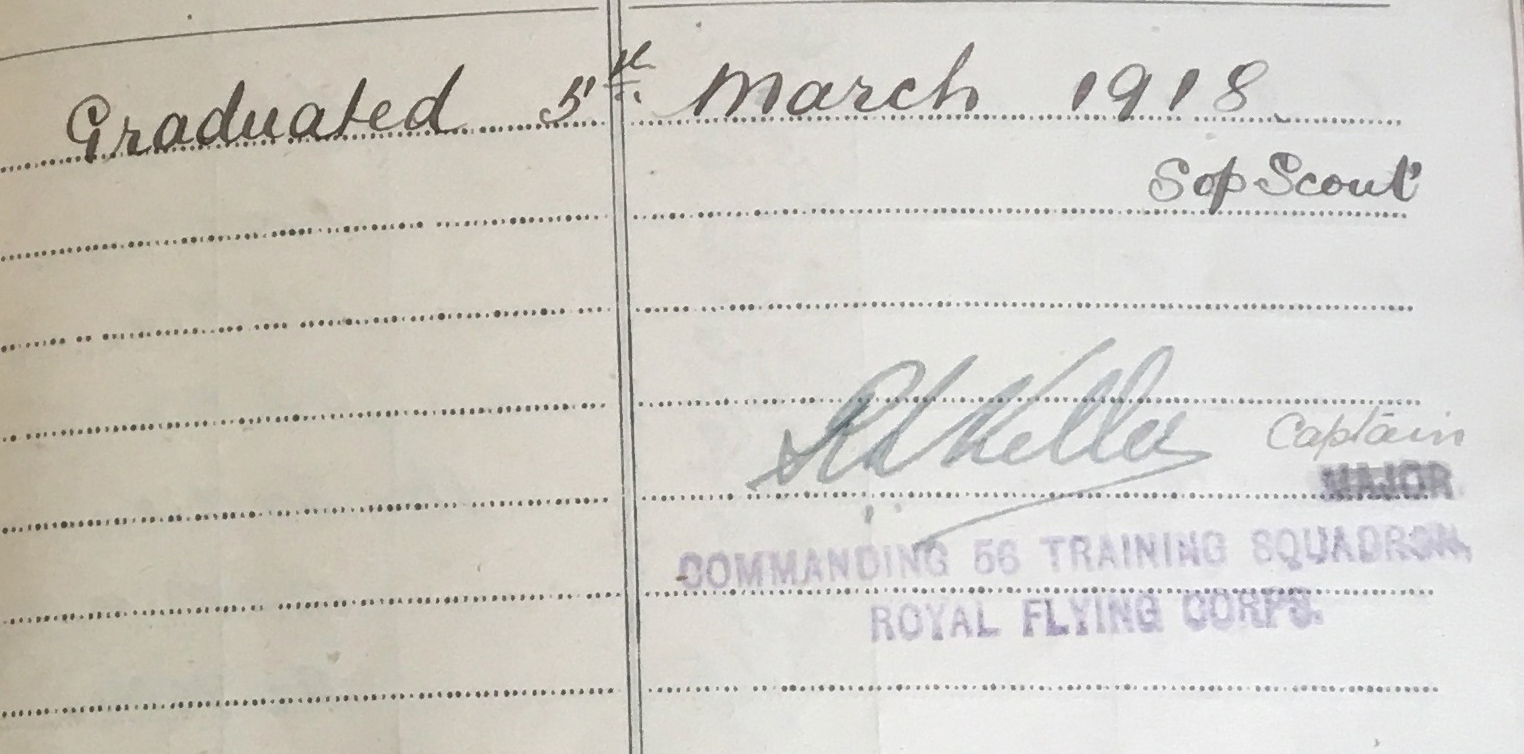 Graduated 5th March 1918
Sop Scout
Captain
MAJOR
COMMANDING 56 TRAINING SQUADRON,
ROYAL FLYING CORPS.